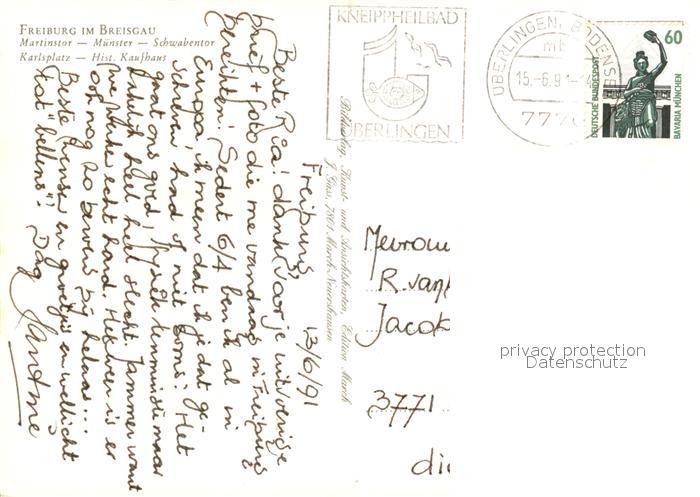 FREIBURG IM BREISGAU
Martinstor — Münster — Schwabentor
Karlsplatz — Hist. Kaufhaus
KNEIPPHEILBAD
ÜBERLINGEN
ÜBERLINGEN, BODENS
mb
15.-6.91
777
60
DEUTSCHE BUNDESPOST
BAVARIA MÜNCHEN
Freiburg, 13/6/91
Beste Ria! dank voor je uitvoerige
brief + foto die me vandaag in Freiburg
bereikten! Sedert 6/4 ben ik al in
Europa. ik meen dat ik je dat ge-
schreven had of niet soms? Het
gaat ons goed, fysiek tenminste maar
zakelijk heel heel slecht. Jammer want
we werken echt hard. Het weer is er
ook nog zo bewens bij helaas...
Beste wensen en groetjes en wellicht
tot "bellens"! Dag
Bildverlag, Kunst- und Ansichtskarten, Edition March
J. Gass, 7801 March-Neuershausen
Mevrouw
R. van
Jacob
3771
die
privacy protection
Datenschutz